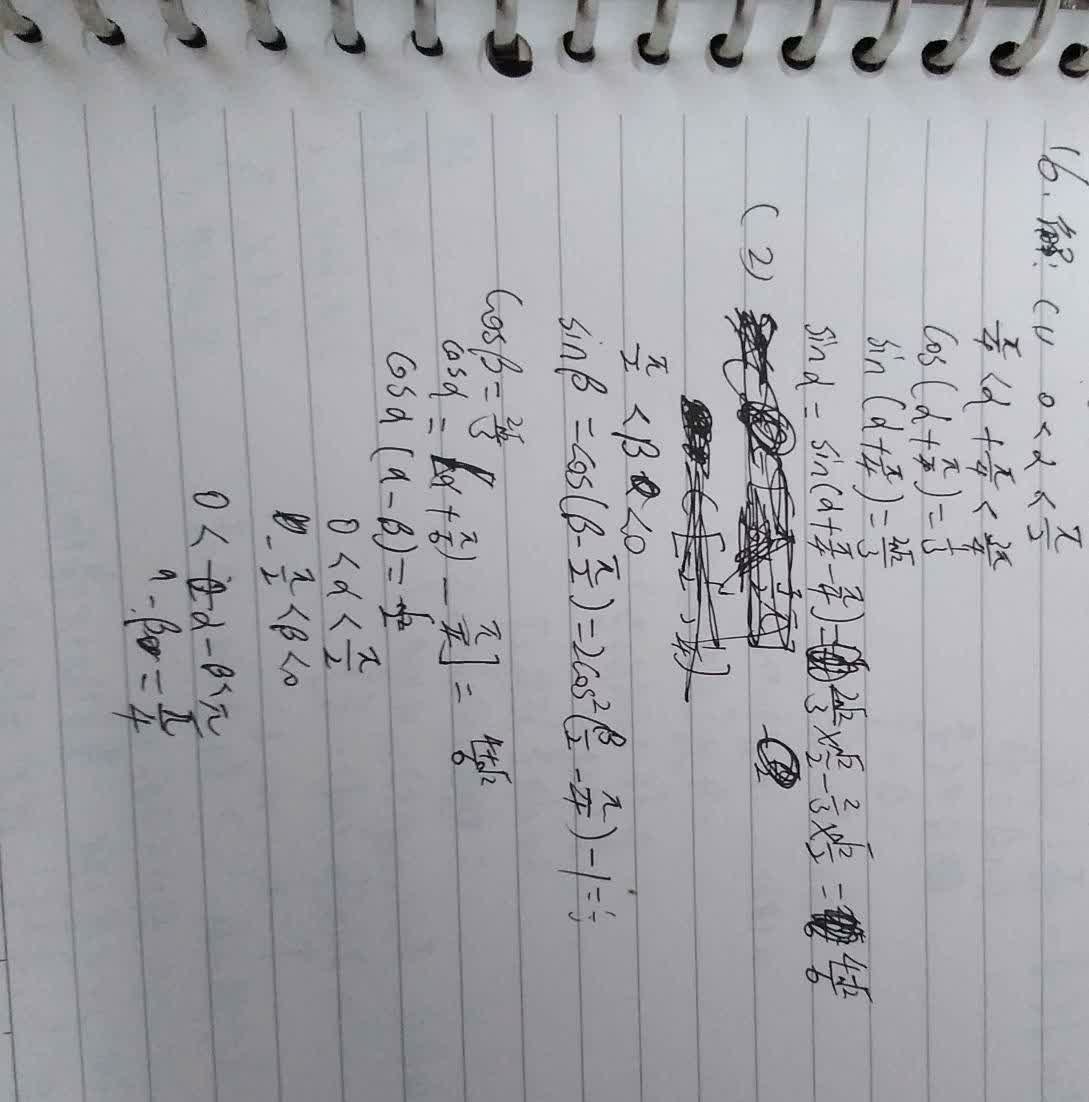 16. 解: (1) 0<α<π/2
π/4<α+π/4<3π/4
cos(α+π/4)=1/3
sin(α+π/4)=2√2/3
sinα = sin(α+π/4-π/4)=2√2/3×√2/2-1/3×√2/2=4-√2/6
(2)
π/2<β<0
sinβ=cos(β-π/2)=2cos²(β/2-π/4)-1=-1/3
cosβ=2√2/3
cosα=[(α+π/4)-π/4]=4+√2/6
cosα(α-β)=√2/2
0<α<π/2
-π/2<β<0
0<α-β<π
α-β=π/4